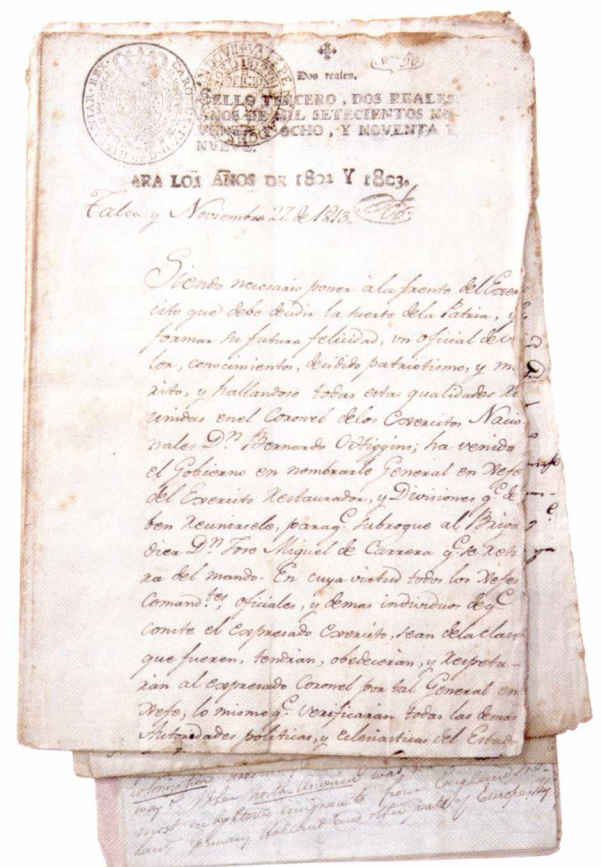 Nº 50
Dos reales.
SELLO TERCERO, DOS REALES
AÑOS DE MIL SETECIENTOS NO
VENTA Y OCHO, Y NOVENTA Y
NUEVE.
ARA LOS AÑOS DE 1802 Y 1803.
Talca y Noviembre 27. de 1813.
Siendo necesario poner á la frente del Exer
cito que debe decidir la suerte dela Patria, y
formar su futura felicidad, vn oficial de va
lor, conocimientos, decidido patriotismo, y me
rito, y hallandose todas estas qualidades re
unidas enel Coronel delos Exercitos Nacio
nales Dn. Bernardo OHiggins; ha venido
el Gobierno en nombrarle General en Xefe
del Exercito Restaurador, y Divisiones q.e de
ben reunirsele, paraq.e subrogue al Briga
dier Dn. Jose Miguel de Carrera q.e se reti
ra del mando. En cuya virtud todos los Xefes
Comand.tes, oficiales, y demas individuos de q.e
conste el expresado Exercito, sean dela clase
que fueren, tendran, obedeceran, y respeta-
ran al expresado Coronel por tal General en
Xefe, lo mismo q.e verificaran todas las demas
Autoridades politicas, y eclesiasticas del Estado
colonisation
way other north America was
most emigrants from England Ire
land Germany Holland and other parts of Europe